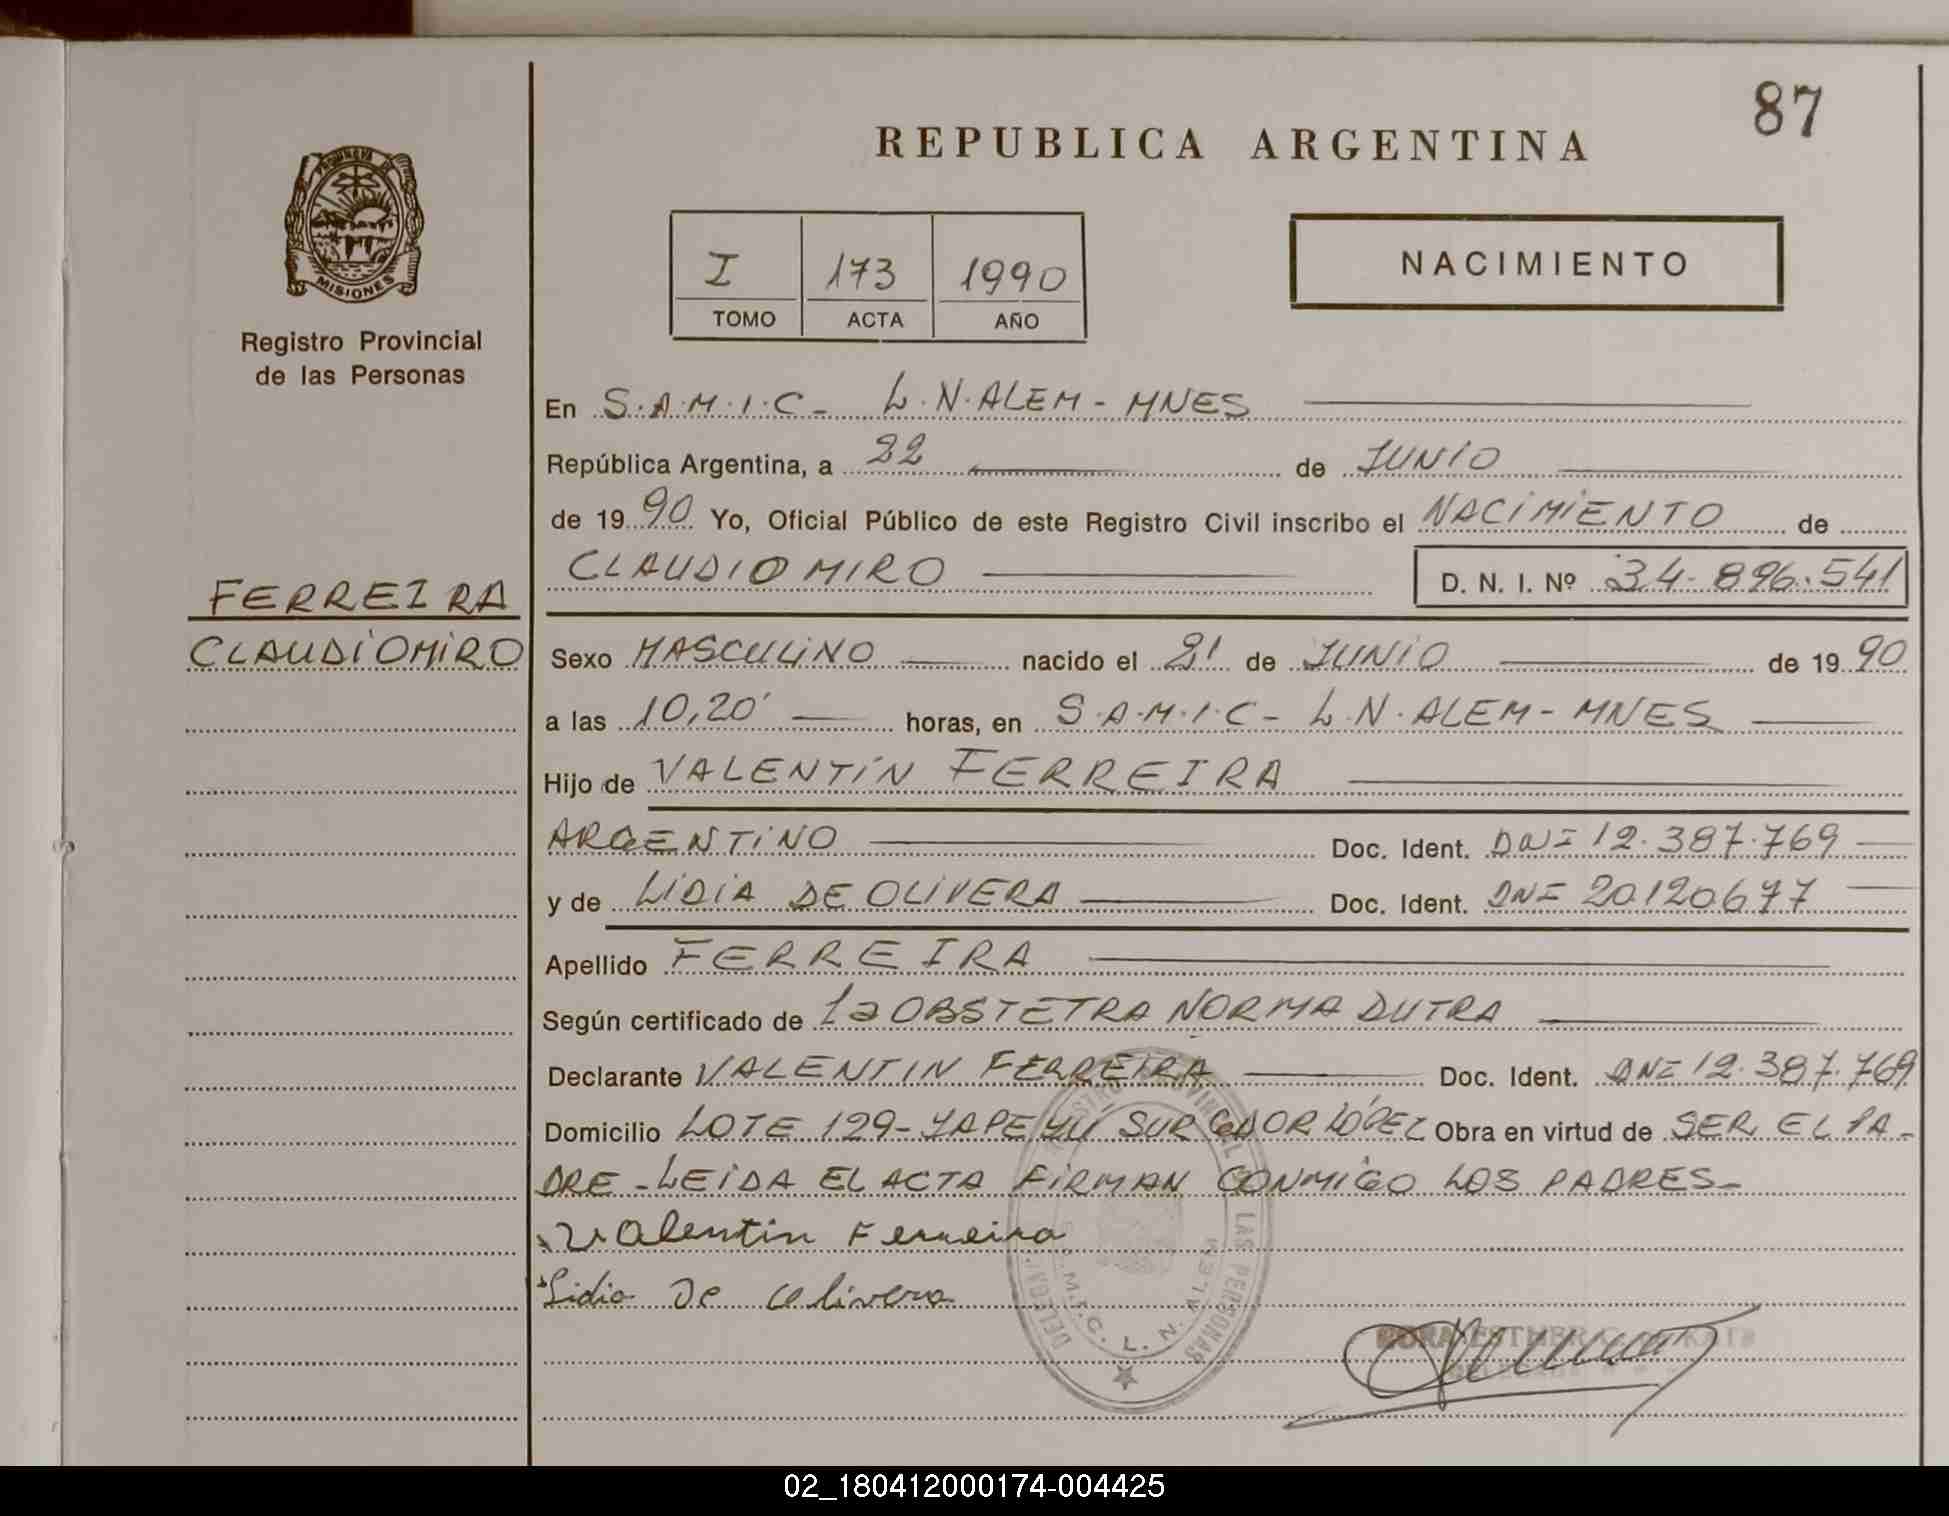 87
REPUBLICA ARGENTINA
PROVINCIA DE
MISIONES
Registro Provincial
de las Personas
I 173 1990
TOMO ACTA AÑO
NACIMIENTO
En S.A.M.I.C- L.N.ALEM-MNES
República Argentina, a 22 de JUNIO
de 1990 Yo, Oficial Público de este Registro Civil inscribo el NACIMIENTO de
CLAUDIOMIRO D. N. I. Nº 34.896.541
FERREIRA
CLAUDIOMIRO
Sexo MASCULINO nacido el 21 de JUNIO de 1990
a las 10,20' horas, en S.A.M.I.C- L.N.ALEM-MNES
Hijo de VALENTIN FERREIRA
ARGENTINO Doc. Ident. DNI 12.387.769
y de LIDIA DE OLIVERA Doc. Ident. DNI 20120677
Apellido FERREIRA
Según certificado de la OBSTETRA NORMA DUTRA
Declarante VALENTIN FERREIRA Doc. Ident. DNI 12.387.769
Domicilio LOTE 129-YAPEYÚ SUR GDOR LÓPEZ Obra en virtud de SER EL PA-
DRE-LEIDA EL ACTA FIRMAN CONMIGO LOS PADRES-
Valentin Ferreira
Lidia De Olivera
LAS PERSONAS
S.A.M.I.C. L. N. ALEM
ESTHER
02_180412000174-004425